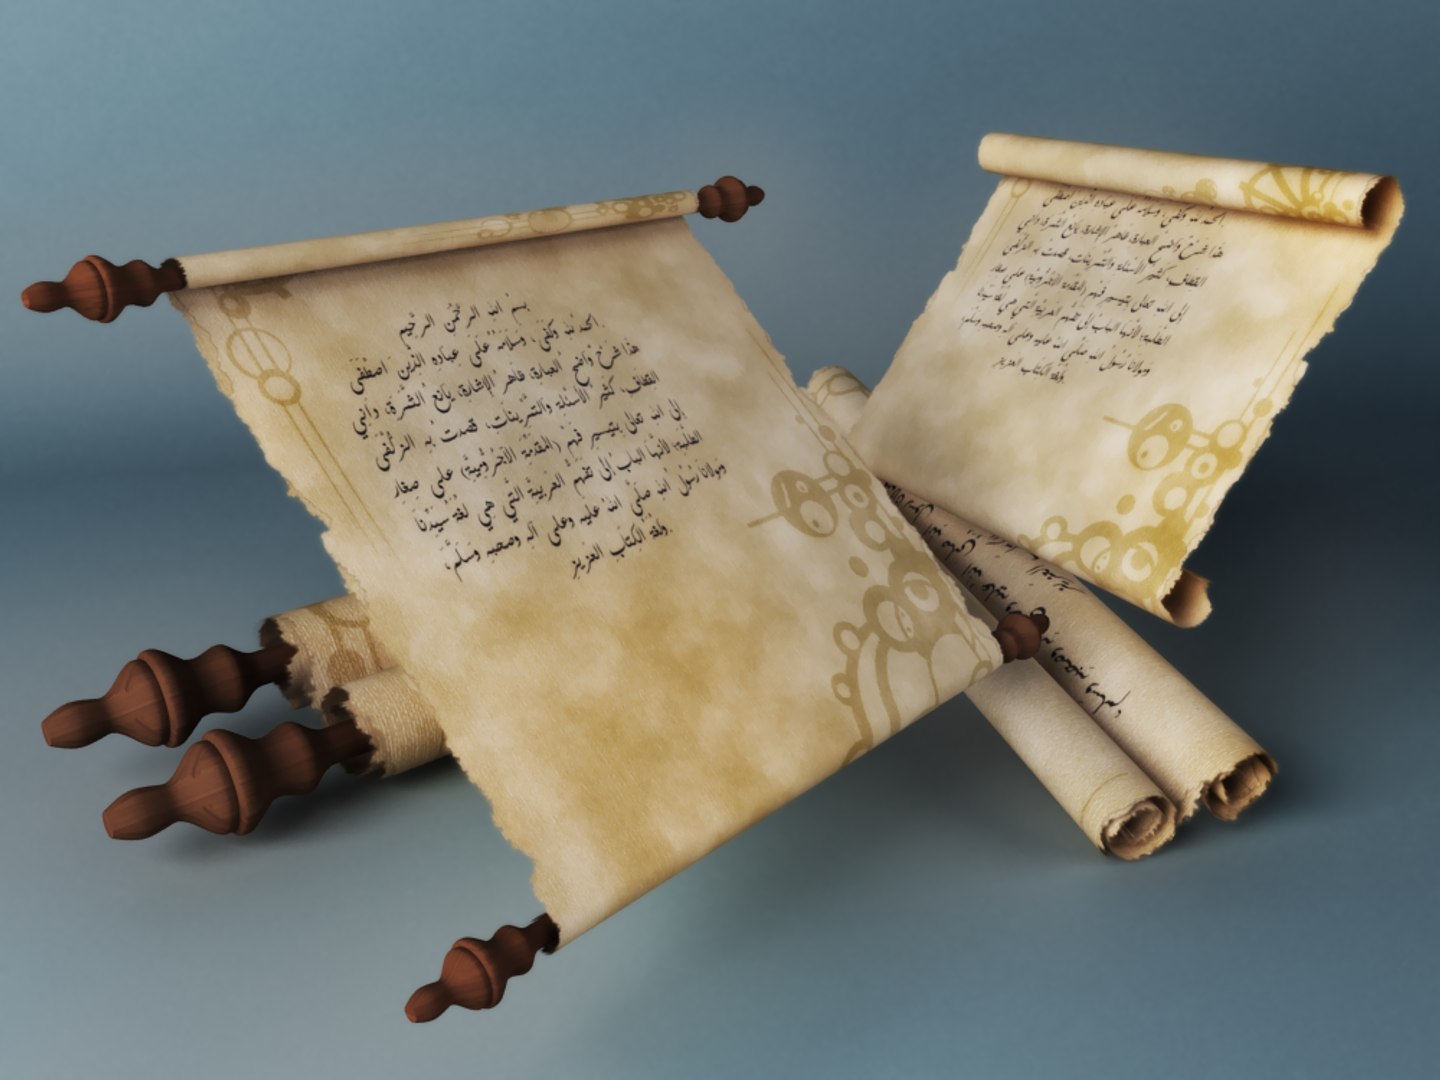 بسم الله الرحمن الرحيم
الحمد لله وكفى، وسلامه على عباده الذين اصطفى
هذا شرح واضح العبارة، ظاهر الإشارة، يانع الثمرة، داني
القطاف، كثير الأسئلة والتمرينات، قصدت به الزلفى
إلى الله تعالى بتيسير فهم (المقدمة الآجرومية) على صغار
الطلبة، لأنها الباب إلى تفهم العربية التي هي لغة سيدنا
ومولانا رسول الله صلى الله عليه وعلى آله وصحبه وسلم،
ولغة الكتاب العزيز.
الحمد لله وكفى، وسلامه على عباده الذين اصطفى
هذا شرح واضح العبارة، ظاهر الإشارة، يانع الثمرة، داني
القطاف، كثير الأسئلة والتمرينات، قصدت به الزلفى
إلى الله تعالى بتيسير فهم (المقدمة الآجرومية) على صغار
الطلبة، لأنها الباب إلى تفهم العربية التي هي لغة سيدنا
ومولانا رسول الله صلى الله عليه وعلى آله وصحبه وسلم،
ولغة الكتاب العزيز.